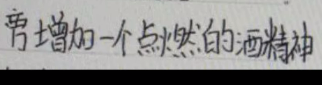 增加一个点燃的酒精神